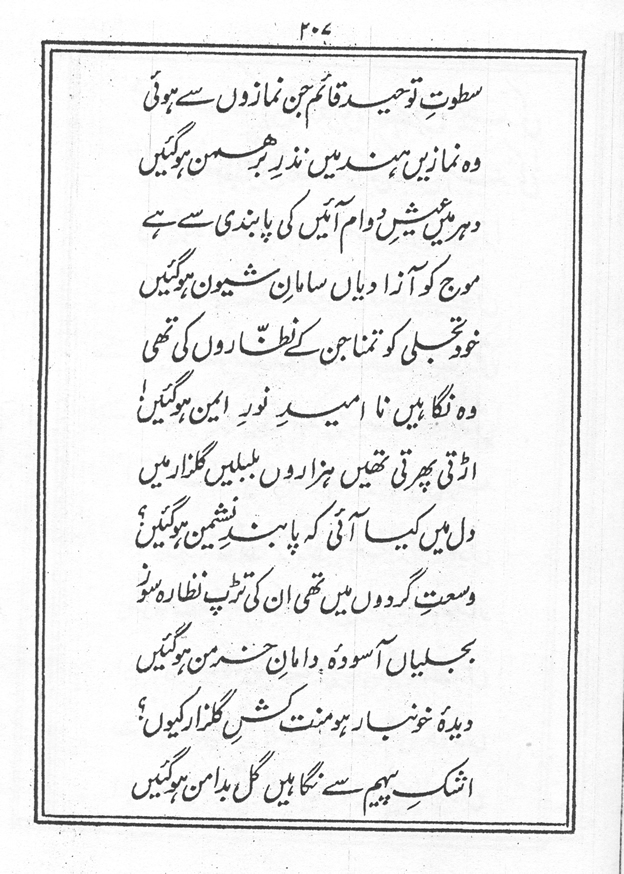 ۲۰۷
سطوتِ توحید قائم جن نمازوں سے ہوئی
وہ نمازیں ہند میں نذرِ برہمن ہوگئیں
دہر میں عیشِ دوام آئیں کی پابندی سے ہے
موج کو آزادیاں سامانِ شیون ہوگئیں
خود تجلی کو تمنا جن کے نظّاروں کی تھی
وہ نگاہیں نا امیدِ نورِ ایمن ہوگئیں!
اڑتی پھرتی تھیں ہزاروں بلبلیں گلزار میں
دل میں کیا آئی کہ پابندِ نشیمن ہوگئیں؟
وسعتِ گردوں میں تھی ان کی تڑپ نظارہ سوز
بجلیاں آسودۂ دامانِ خرمن ہوگئیں
دیدۂ خونبار ہو منت کشِ گلزار کیوں؟
اشکِ پیہم سے نگاہیں گل بدامن ہوگئیں